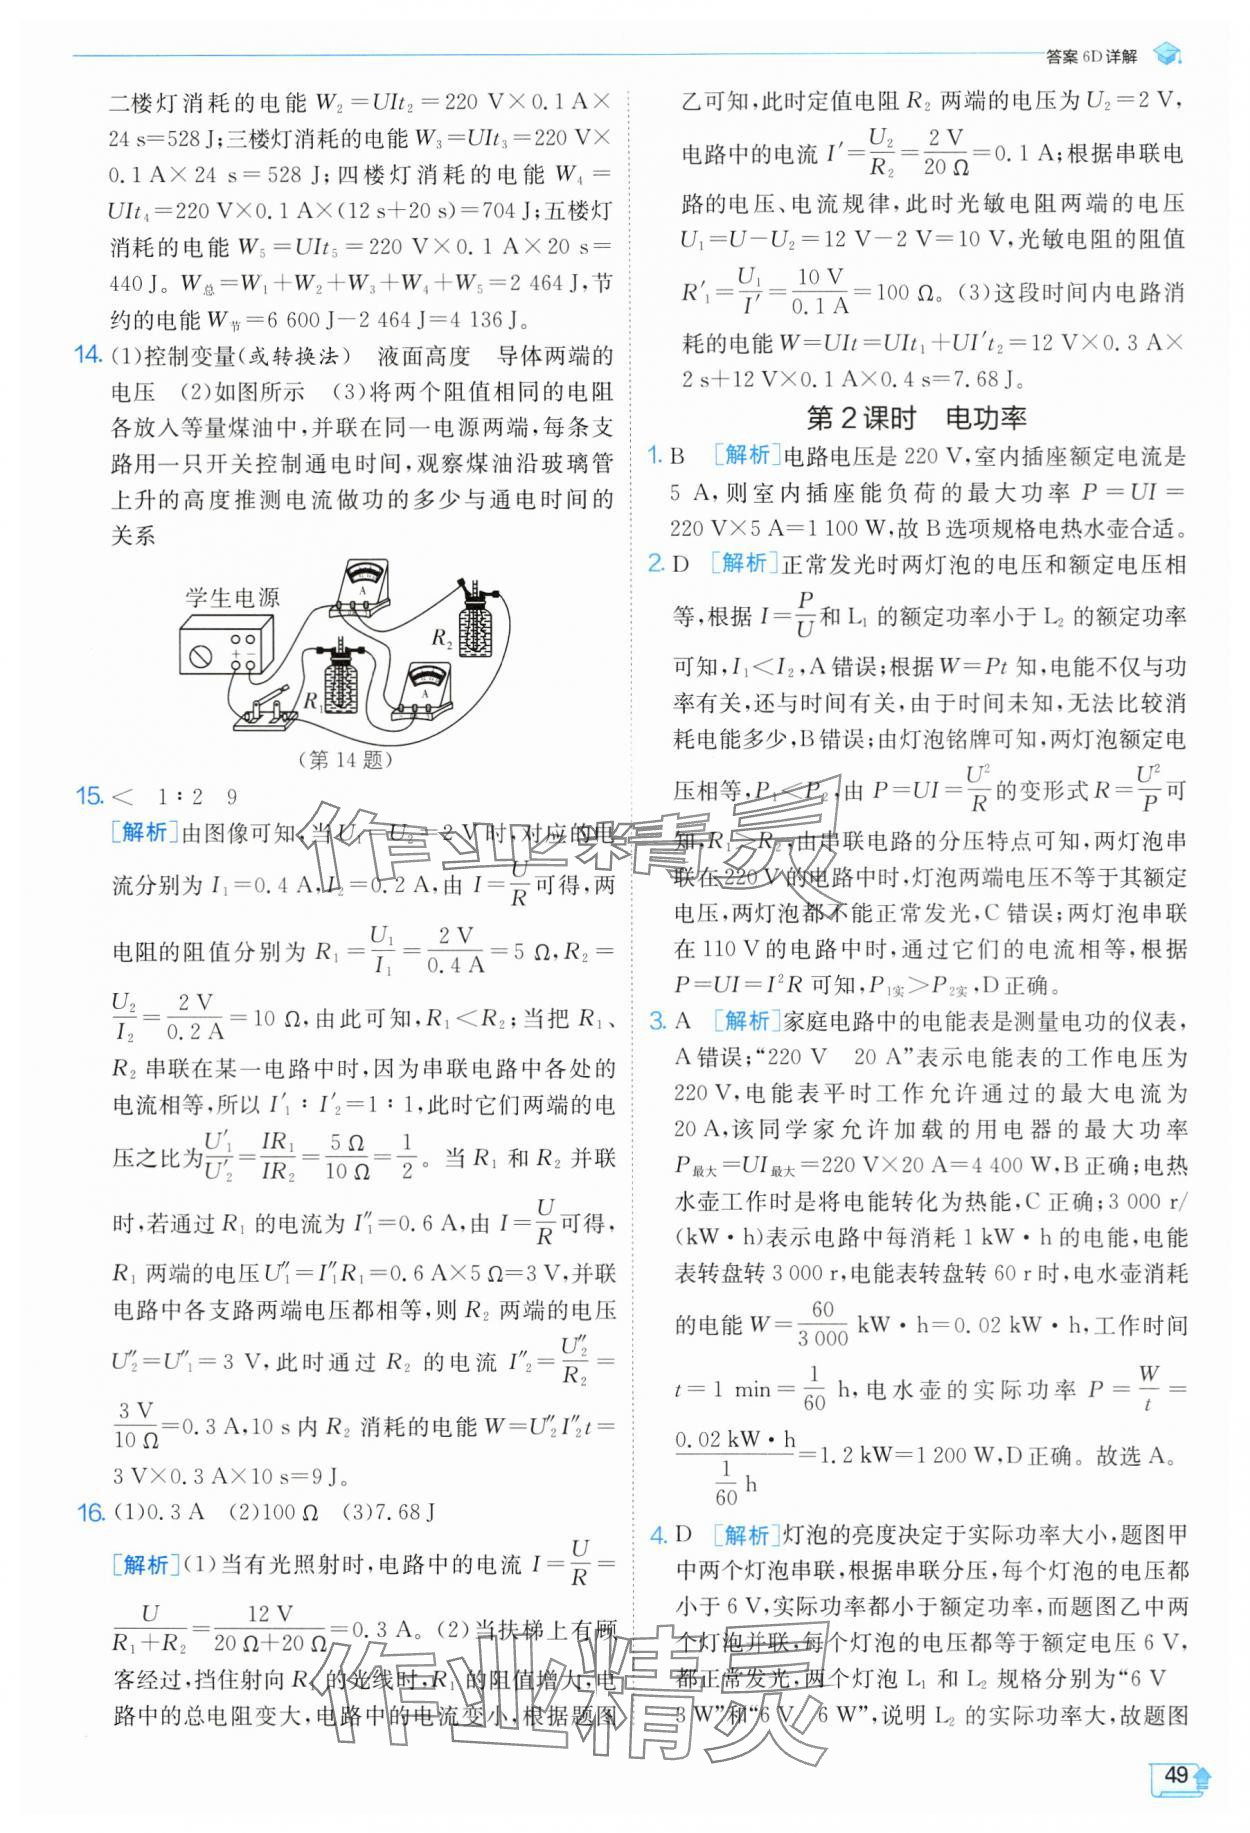 答案 6D详解
二楼灯消耗的电能 W₂=UIt₂=220 V×0.1 A×
24 s=528 J;三楼灯消耗的电能 W₃=UIt₃=220 V×
0.1 A×24 s=528 J;四楼灯消耗的电能 W₄=
UIt₄=220 V×0.1 A×(12 s+20 s)=704 J;五楼灯
消耗的电能 W₅=UIt₅=220 V×0.1 A×20 s=
440 J。W总=W₁+W₂+W₃+W₄+W₅=2 464 J,节
约的电能 W节=6 600 J-2 464 J=4 136 J。
14. (1)控制变量(或转换法) 液面高度 导体两端的
电压 (2)如图所示 (3)将两个阻值相同的电阻
各放入等量煤油中,并联在同一电源两端,每条支
路用一只开关控制通电时间,观察煤油沿玻璃管
上升的高度推测电流做功的多少与通电时间的
关系
学生电源
A
R₂
R₁
A
(第14题)
15. < 1∶2 9
[解析]由图像可知,当 U₁=U₂=2 V 时,对应的电
流分别为 I₁=0.4 A,I₂=0.2 A,由 I=U/R可得,两
电阻的阻值分别为 R₁=U₁/I₁=2 V/0.4 A=5 Ω,R₂=
U₂/I₂=2 V/0.2 A=10 Ω,由此可知,R₁<R₂;当把 R₁、
R₂ 串联在某一电路中时,因为串联电路中各处的
电流相等,所以 I′₁∶I′₂=1∶1,此时它们两端的电
压之比为U′₁/U′₂=IR₁/IR₂=5 Ω/10 Ω=1/2。当 R₁ 和 R₂ 并联
时,若通过 R₁ 的电流为 I″₁=0.6 A,由 I=U/R可得,
R₁ 两端的电压U″₁=I″₁R₁=0.6 A×5 Ω=3 V,并联
电路中各支路两端电压都相等,则 R₂ 两端的电压
U″₂=U″₁=3 V,此时通过 R₂ 的电流 I″₂=U″₂/R₂=
3 V/10 Ω=0.3 A,10 s内 R₂ 消耗的电能 W=U″₂I″₂t=
3 V×0.3 A×10 s=9 J。
16. (1)0.3 A (2)100 Ω (3)7.68 J
[解析](1)当有光照射时,电路中的电流 I=U/R=
U/(R₁+R₂)=12 V/(20 Ω+20 Ω)=0.3 A。(2)当扶梯上有顾
客经过,挡住射向 R₁ 的光线时,R₁ 的阻值增大,电
路中的总电阻变大,电路中的电流变小,根据题图
乙可知,此时定值电阻 R₂ 两端的电压为 U₂=2 V,
电路中的电流 I′=U₂/R₂=2 V/20 Ω=0.1 A;根据串联电
路的电压、电流规律,此时光敏电阻两端的电压
U₁=U-U₂=12 V-2 V=10 V,光敏电阻的阻值
R′₁=U₁/I′=10 V/0.1 A=100 Ω。(3)这段时间内电路消
耗的电能 W=UIt=UIt₁+UI′t₂=12 V×0.3 A×
2 s+12 V×0.1 A×0.4 s=7.68 J。
第2课时 电功率
1. B [解析]电路电压是 220 V,室内插座额定电流是
5 A,则室内插座能负荷的最大功率 P=UI=
220 V×5 A=1 100 W,故 B选项规格电热水壶合适。
2. D [解析]正常发光时两灯泡的电压和额定电压相
等,根据 I=P/U和 L₁ 的额定功率小于 L₂ 的额定功率
可知,I₁<I₂,A 错误;根据 W=Pt 知,电能不仅与功
率有关,还与时间有关,由于时间未知,无法比较消
耗电能多少,B 错误;由灯泡铭牌可知,两灯泡额定电
压相等,P₁<P₂,由 P=UI=U²/R的变形式 R=U²/P可
知,R₁>R₂,由串联电路的分压特点可知,两灯泡串
联在 220 V 的电路中时,灯泡两端电压不等于其额定
电压,两灯泡都不能正常发光,C 错误;两灯泡串联
在 110 V 的电路中时,通过它们的电流相等,根据
P=UI=I²R 可知,P₁实>P₂实,D正确。
3. A [解析]家庭电路中的电能表是测量电功的仪表,
A 错误;“220 V 20 A”表示电能表的工作电压为
220 V,电能表平时工作允许通过的最大电流为
20 A,该同学家允许加载的用电器的最大功率
P最大=UI最大=220 V×20 A=4 400 W,B 正确;电热
水壶工作时是将电能转化为热能,C 正确;3 000 r/
(kW·h)表示电路中每消耗 1 kW·h 的电能,电能
表转盘转 3 000 r,电能表转盘转 60 r 时,电水壶消耗
的电能 W=60/3 000 kW·h=0.02 kW·h,工作时间
t=1 min=1/60 h,电水壶的实际功率 P=W/t=
0.02 kW·h/(1/60 h)=1.2 kW=1 200 W,D 正确。故选 A。
4. D [解析]灯泡的亮度决定于实际功率大小,题图甲
中两个灯泡串联,根据串联分压,每个灯泡的电压都
小于 6 V,实际功率都小于额定功率,而题图乙中两
个灯泡并联,每个灯泡的电压都等于额定电压 6 V,
都正常发光,两个灯泡 L₁ 和 L₂ 规格分别为“6 V
3 W”和“6 V 6 W”,说明 L₂ 的实际功率大,故题图
49
作业精灵
作业精灵